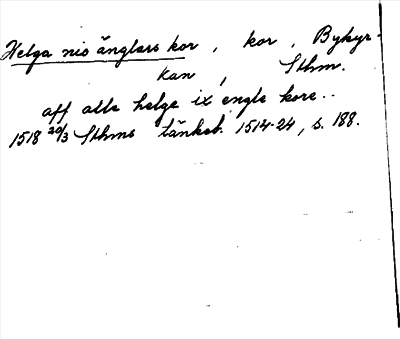 Helga nio änglars kor, kor, Bykyr-
kan, Sthm.
aff alle helge ix engle kore..
1518 20/3 Sthms tänkeb. 1514-24, s. 188.